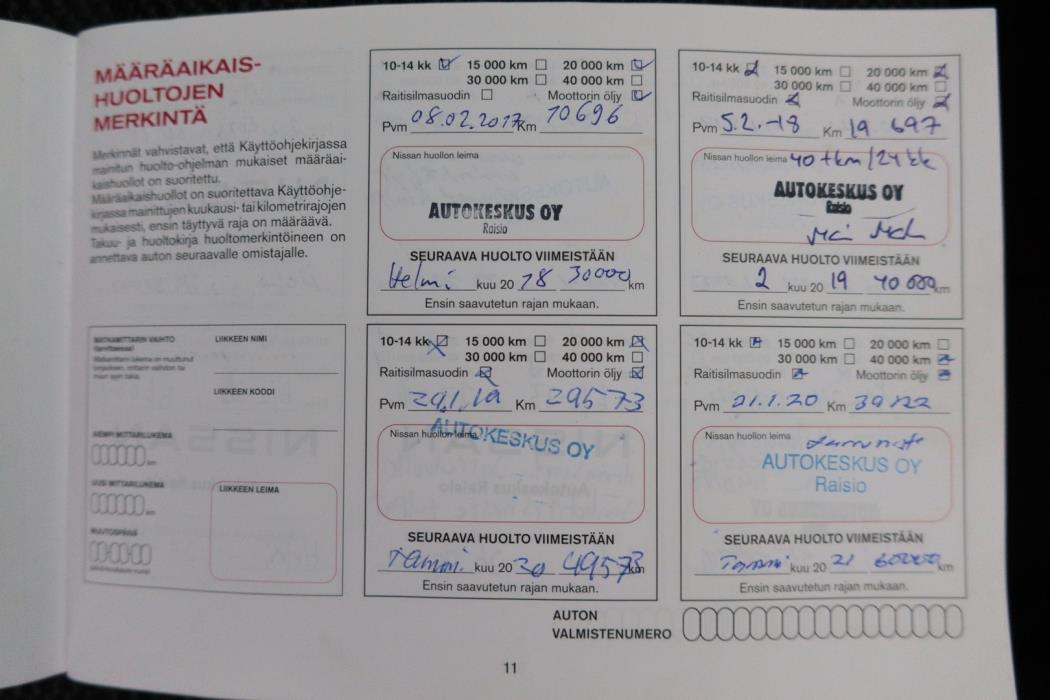 MÄÄRÄAIKAIS-
HUOLTOJEN
MERKINTÄ
Merkinnät vahvistavat, että Käyttöohjekirjassa
mainitun huolto-ohjelman mukaiset määräai-
kaishuollot on suoritettu.
Määräaikaishuollot on suoritettava Käyttöohje-
kirjassa mainittujen kuukausi- tai kilometrirajojen
mukaisesti, ensin täyttyvä raja on määräävä.
Takuu- ja huoltokirja huoltomerkintöineen on
annettava auton seuraavalle omistajalle.
10-14 kk 15 000 km 20 000 km
30 000 km 40 000 km
Raitisilmasuodin Moottorin öljy
Pvm 08.02.2017 Km 10696
Nissan huollon leima
AUTOKESKUS OY
Raisio
SEURAAVA HUOLTO VIIMEISTÄÄN
Helmi kuu 20 18 30000 km
Ensin saavutetun rajan mukaan.
10-14 kk 15 000 km 20 000 km
30 000 km 40 000 km
Raitisilmasuodin Moottorin öljy
Pvm 5.2.-18 Km 19 697
Nissan huollon leima 40 tkm/24 kk
AUTOKESKUS OY
Raisio
SEURAAVA HUOLTO VIIMEISTÄÄN
2 kuu 20 19 40 000 km
Ensin saavutetun rajan mukaan.
MATKAMITTARIN VAIHTO
(tarvittaessa)
LIIKKEEN NIMI
LIIKKEEN KOODI
AIEMPI MITTARILUKEMA
km
UUSI MITTARILUKEMA
km
LIIKKEEN LEIMA
MUUTOSPÄIVÄ
10-14 kk 15 000 km 20 000 km
30 000 km 40 000 km
Raitisilmasuodin Moottorin öljy
Pvm 29.1.19 Km 29573
Nissan huollon leima
AUTOKESKUS OY
SEURAAVA HUOLTO VIIMEISTÄÄN
Tammi kuu 20 20 49573 km
Ensin saavutetun rajan mukaan.
10-14 kk 15 000 km 20 000 km
30 000 km 40 000 km
Raitisilmasuodin Moottorin öljy
Pvm 21.1.20 Km 39122
Nissan huollon leima
AUTOKESKUS OY
Raisio
SEURAAVA HUOLTO VIIMEISTÄÄN
Tammi kuu 20 21 60000 km
Ensin saavutetun rajan mukaan.
AUTON
VALMISTENUMERO
11